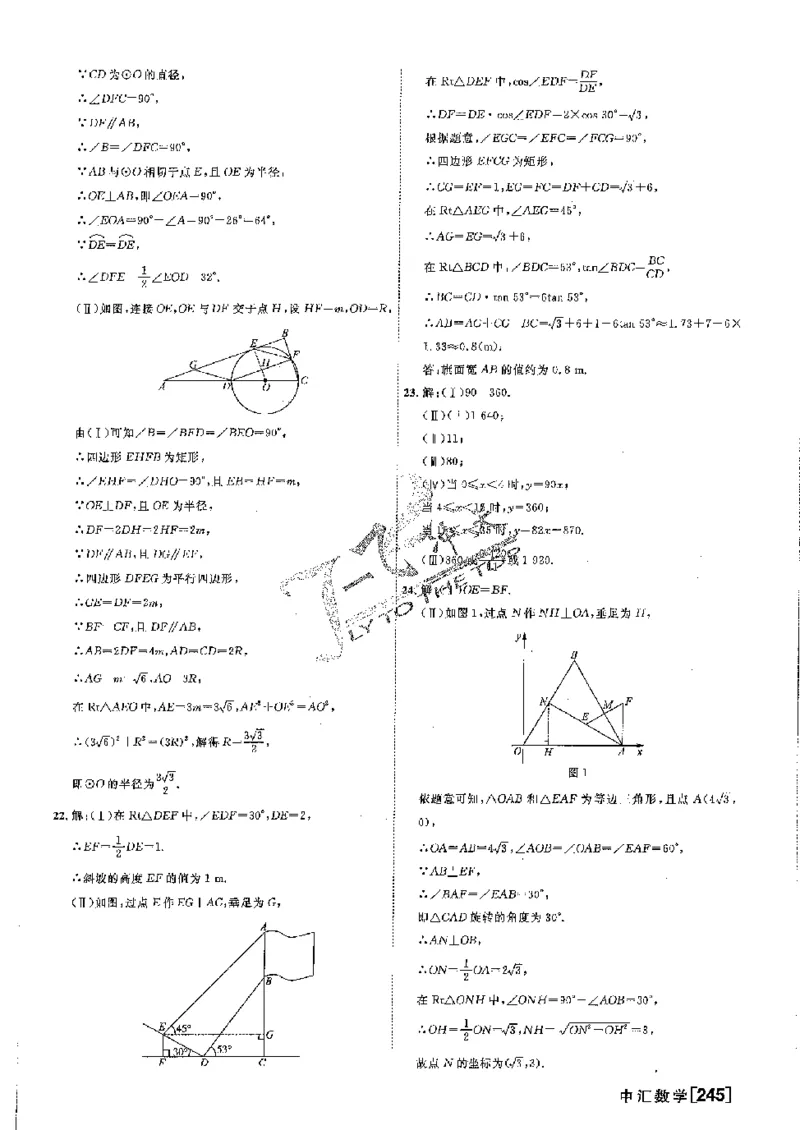 ∵CD为⊙O的直径，
∴∠DFC=90°，
∵DF∥AB，
∴∠B=∠DFC=90°，
∵AB与⊙O相切于点E，且OE为半径，
∴OE⊥AB，即∠OEA=90°，
∴∠EOA=90°－∠A=90°－26°=64°，
∵DE=DE，
∴∠DFE 1/2∠EOD 32°.
(Ⅱ)如图，连接OE，OE与DF交于点H，设HF=m，OD=R，
B
E
F
G
H
A
D
O
C
由(Ⅰ)可知∠B=∠BFD=∠BEO=90°，
∴四边形EHFB为矩形，
∴∠EHF=∠DHO=90°，且EB=HF=m，
∵OE⊥DF，且OE为半径，
∴DF=2DH=2HF=2m，
∵DF∥AB，且DG∥EF，
∴四边形DFEG为平行四边形，
∴GE=DF=2m，
∵BF CF，且DF∥AB，
∴AB=2DF=4m，AD=CD=2R，
∴AG m √6，AO 3R，
在Rt△AEO中，AE=3m=3√6，AE²+OE²=AO²，
∴(3√6)²+R²=(3R)²，解得R=3√3/2，
即⊙O的半径为3√3/2.
22.解：(Ⅰ)在Rt△DEF中，∠EDF=30°，DE=2，
∴EF=1/2DE=1.
∴斜坡的高度EF的值为1 m.
(Ⅱ)如图，过点E作EG⊥AC，垂足为G，
A
B
E
45°
G
30°
53°
F
D
C
在Rt△DEF中，cos∠EDF=DF/DE，
∴DF=DE·cos∠EDF=2×cos 30°=√3，
根据题意，∠EGC=∠EFC=∠FCG=90°，
∴四边形EFCG为矩形，
∴CG=EF=1，EG=FC=DF+CD=√3+6，
在Rt△AEG中，∠AEG=45°，
∴AG=EG=√3+6，
在Rt△BCD中，∠BDC=53°，tan∠BDC=BC/CD，
∴BC=CD·tan 53°=6tan 53°，
∴AB=AG+CG BC=√3+6+1－6tan 53°≈1.73+7－6×
1.33≈0.8(m)，
答：旗面宽AB的值约为0.8 m.
23.解：(Ⅰ)90 360.
(Ⅱ)(ⅰ)1 640；
(ⅱ)11；
(ⅲ)80；
(ⅳ)当0≤x<4时，y=90x；
当4≤x<15时，y=360；
时，y=82x－870.
(Ⅲ)360 或1 920.
24.解：(Ⅰ)OE=BF.
(Ⅱ)如图1，过点N作NH⊥OA，垂足为H，
y
B
N
M
F
E
O
H
A
x
图1
依题意可知，△OAB和△EAF为等边三角形，且点A(4√3，
0)，
∴OA=AB=4√3，∠AOB=∠OAB=∠EAF=60°，
∵AB⊥EF，
∴∠BAF=∠EAB=30°，
即△CAD旋转的角度为30°.
∴AN⊥OB，
∴ON=1/2OA=2√3，
在Rt△ONH中，∠ONH=90°－∠AOB=30°，
∴OH=1/2ON=√3，NH=√(ON²－OH²)=3，
故点N的坐标为(√3，3).
中汇数学[245]